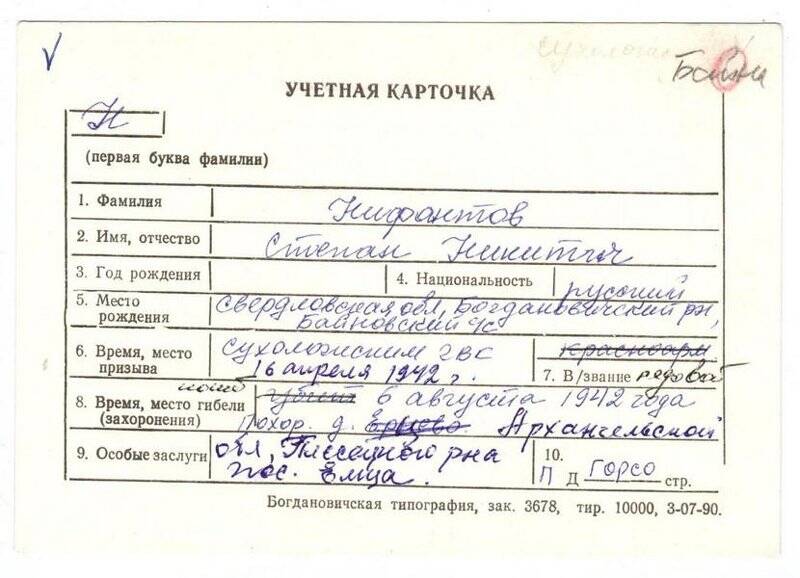 Байны
УЧЕТНАЯ КАРТОЧКА
Н
(первая буква фамилии)
1. Фамилия Нифантов
2. Имя, отчество Степан Никитич
3. Год рождения 4. Национальность русский
5. Место рождения Свердловская обл, Богдановичский рн,
Байновский с/с
6. Время, место призыва Сухоложским гвс красноарм
16 апреля 1942 г. 7. В/звание рядовой
погиб
8. Время, место гибели (захоронения) убит 6 августа 1942 года
Похор. д. Архангельской
9. Особые заслуги обл, Плесецкого рна 10.
пос. Емца. П Д ГОРСО стр.
Богдановичская типография, зак. 3678, тир. 10000, 3-07-90.